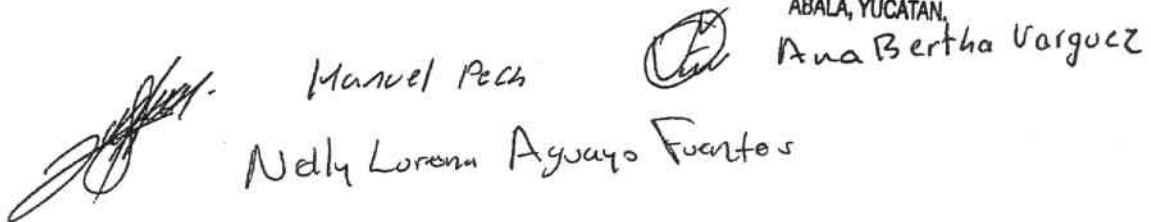 ABALA, YUCATAN,
Manuel Pech
Ana Bertha Varguez
Nelly Lorena Aguayo Fuentes